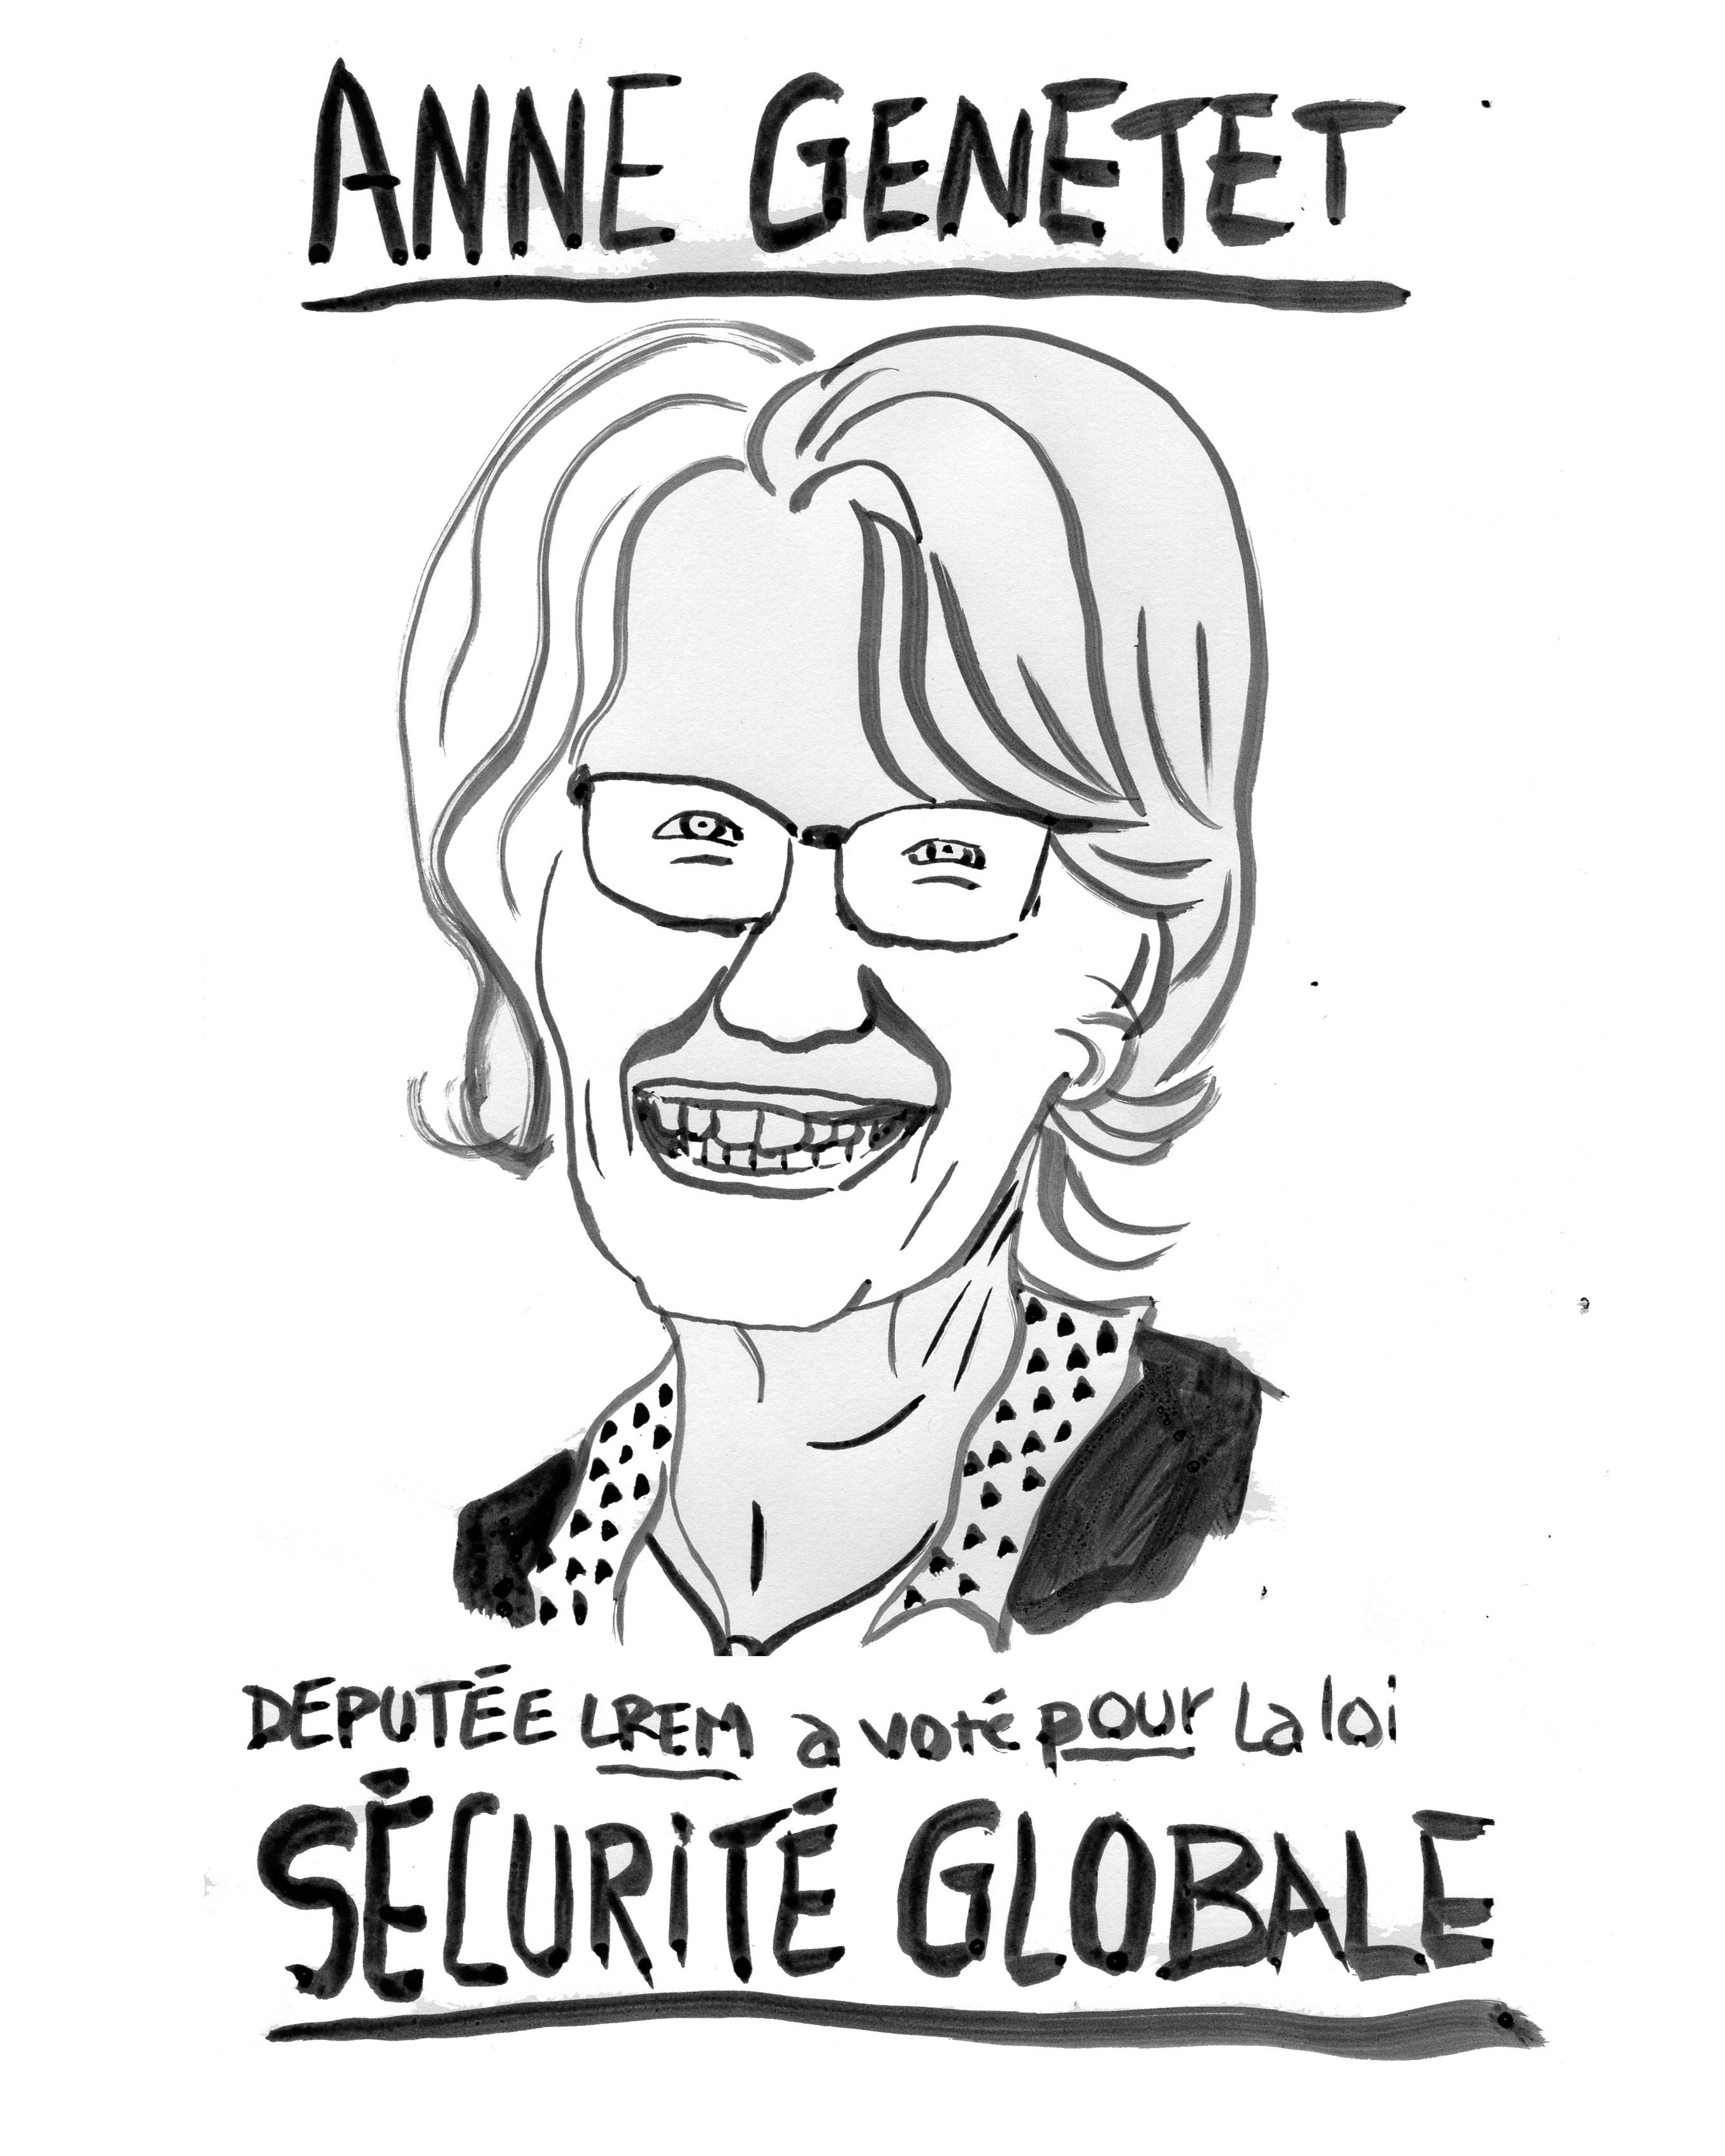 ANNE GENETET
DEPUTÉE LREM a voté pour La loi
SÉCURITÉ GLOBALE